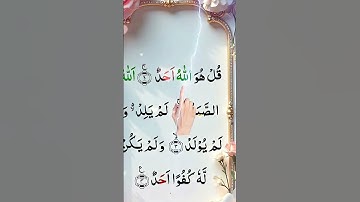 قُلْ هُوَ اللّٰهُ اَحَدٌ ۚ﴿۱﴾ اَللّٰهُ
الصَّمَدُ ۚ لَمْ يَلِدْ ۙ وَ
لَمْ يُوْلَدْ ۙ﴿۳﴾ وَلَمْ يَكُنْ
لَّهٗ كُفُوًا اَحَدٌ ۧ﴿۴﴾